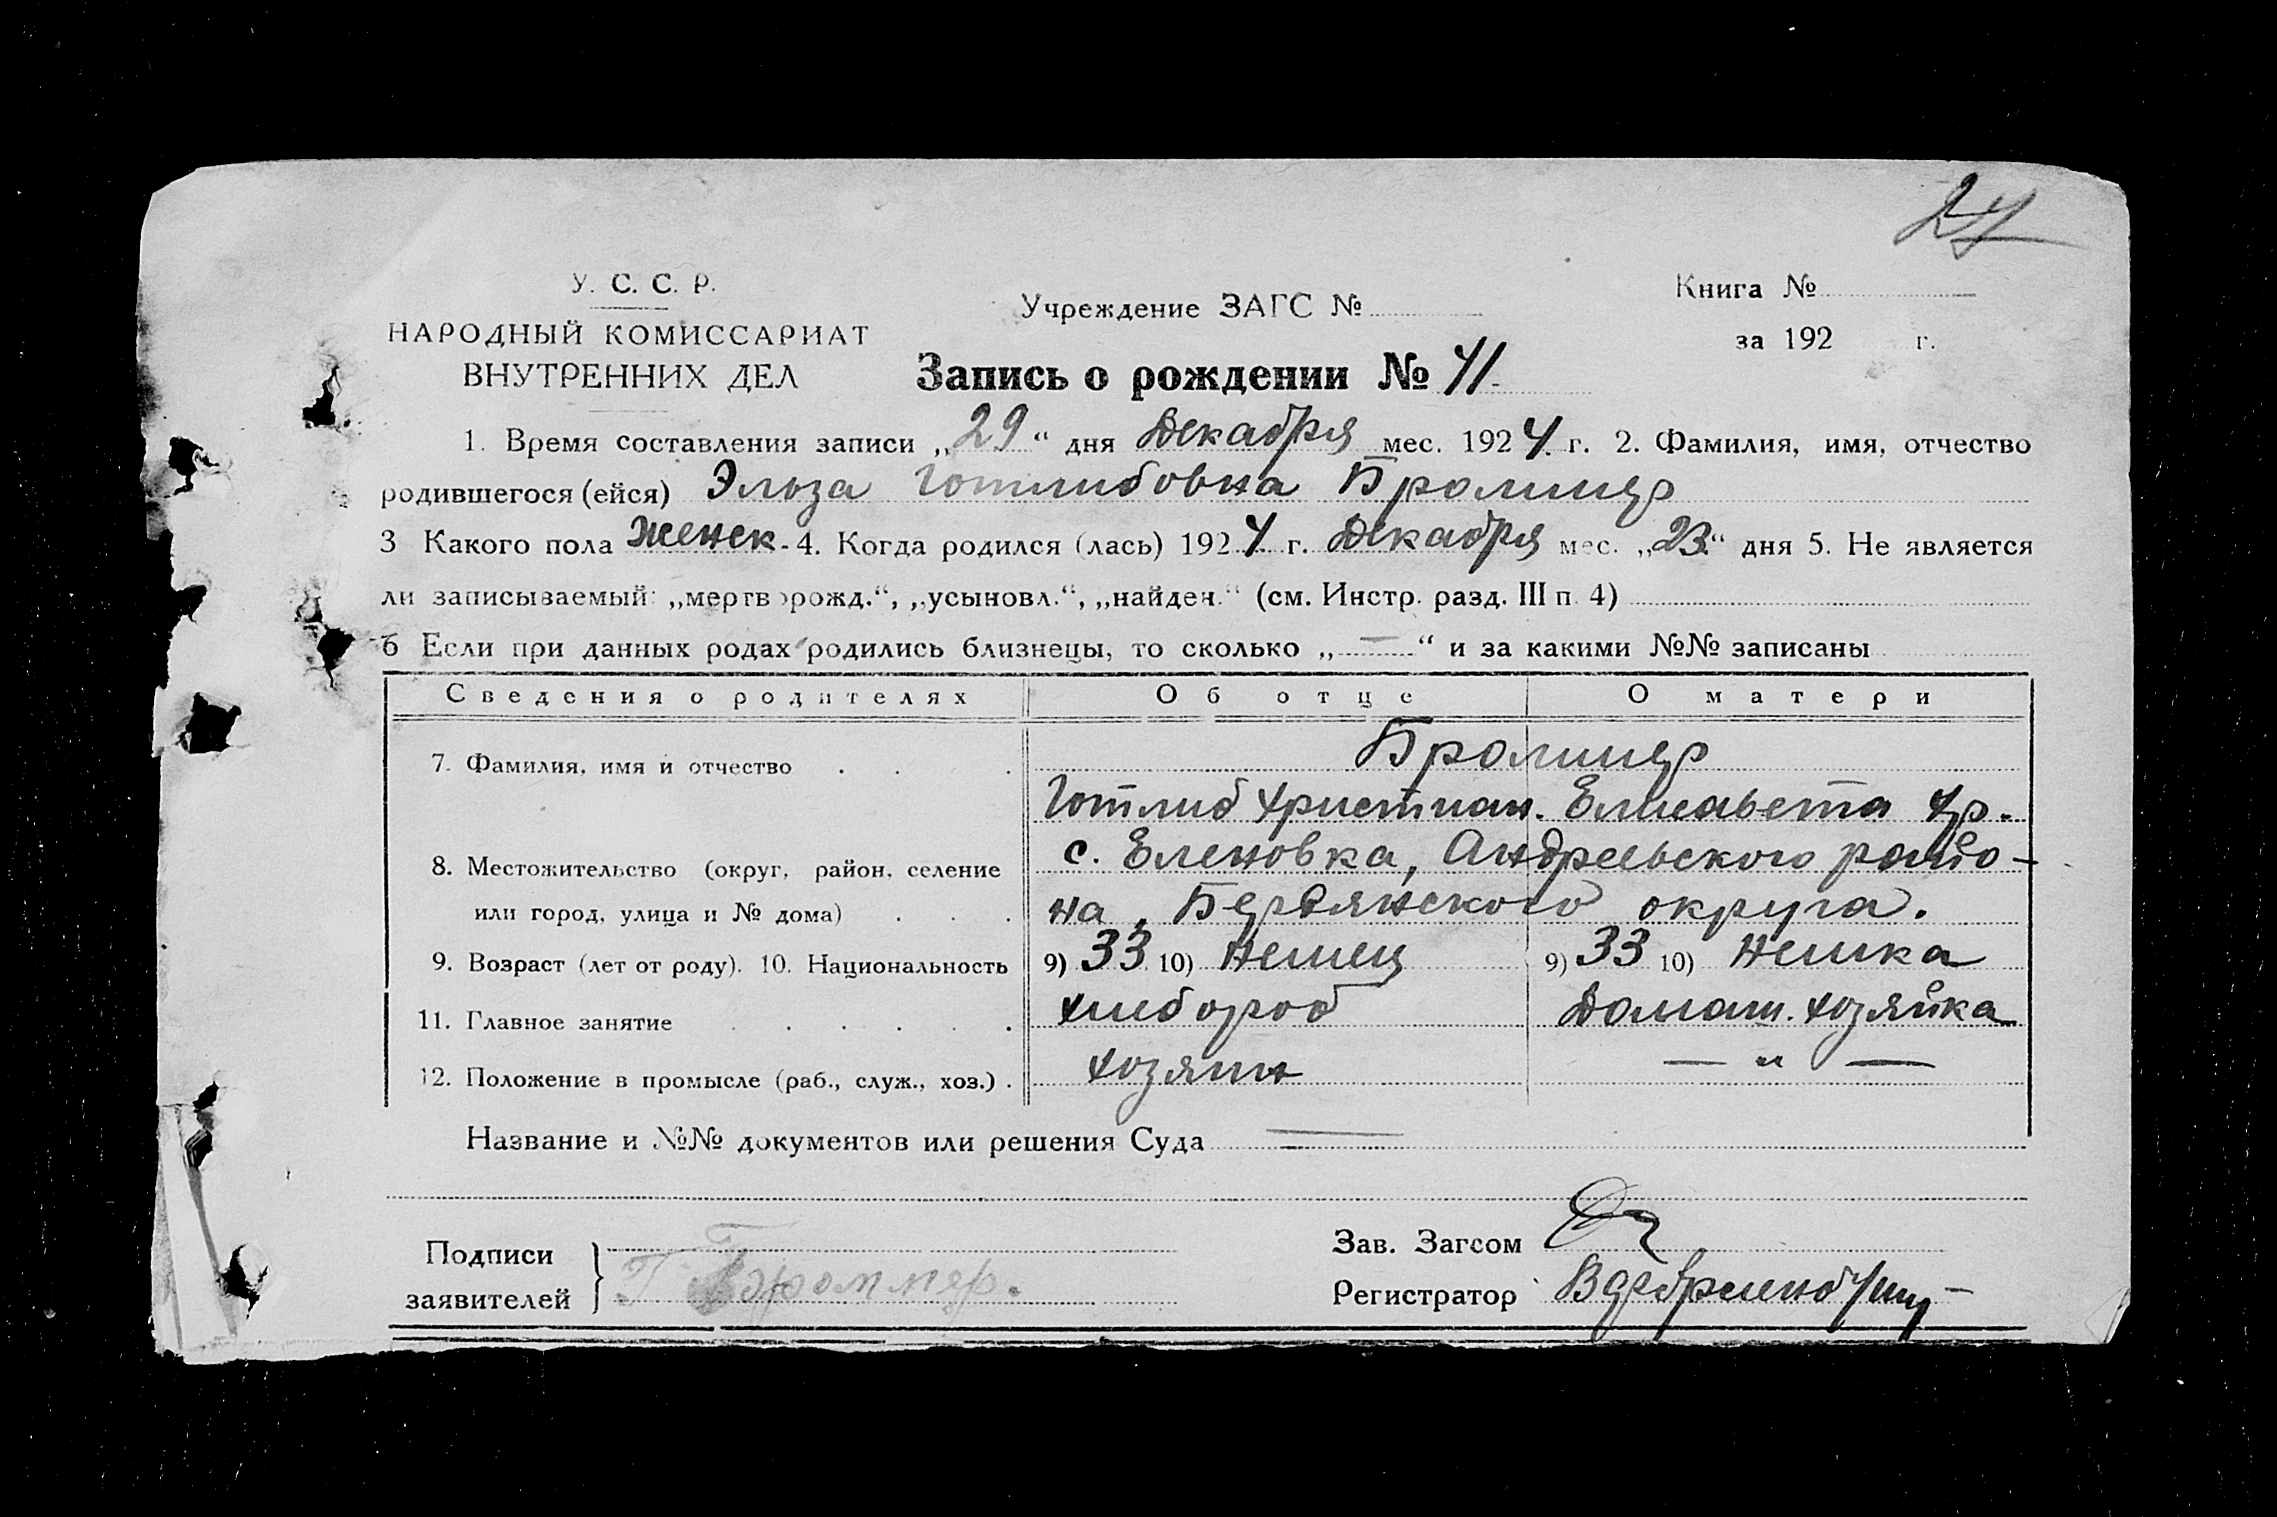 24
У. С. С. Р.
НАРОДНЫЙ КОМИССАРИАТ
ВНУТРЕННИХ ДЕЛ
Учреждение ЗАГС №
Книга №
за 192 г.
Запись о рождении № 41
1. Время составления записи „29“ дня Декабря мес. 1924 г. 2. Фамилия, имя, отчество
родившегося (ейся) Эльза Готлибовна Бролмер
3 Какого пола женск - 4. Когда родился (лась) 1924 г. Декабря мес. „23“ дня 5. Не является
ли записываемый: „мертворожд.“, „усыновл.“, „найден.“ (см. Инстр. разд. III п. 4)
6 Если при данных родах родились близнецы, то сколько „—“ и за какими №№ записаны
Сведения о родителях Об отце О матери
7. Фамилия, имя и отчество . . . Бролмер
Готлиб Христиан. Елисавета Хр.
8. Местожительство (округ, район, селение с. Еленовка, Андреевского райо-
или город, улица и № дома) . . . на, Бердянского округа.
9. Возраст (лет от роду). 10. Национальность 9) 33 10) Немец 9) 33 10) Немка
11. Главное занятие . . . . . . хлебороб Домаш. хозяйка
12. Положение в промысле (раб., служ., хоз.) . хозяин — " —
Название и №№ документов или решения Суда —
Подписи
заявителей
Зав. Загсом
Регистратор